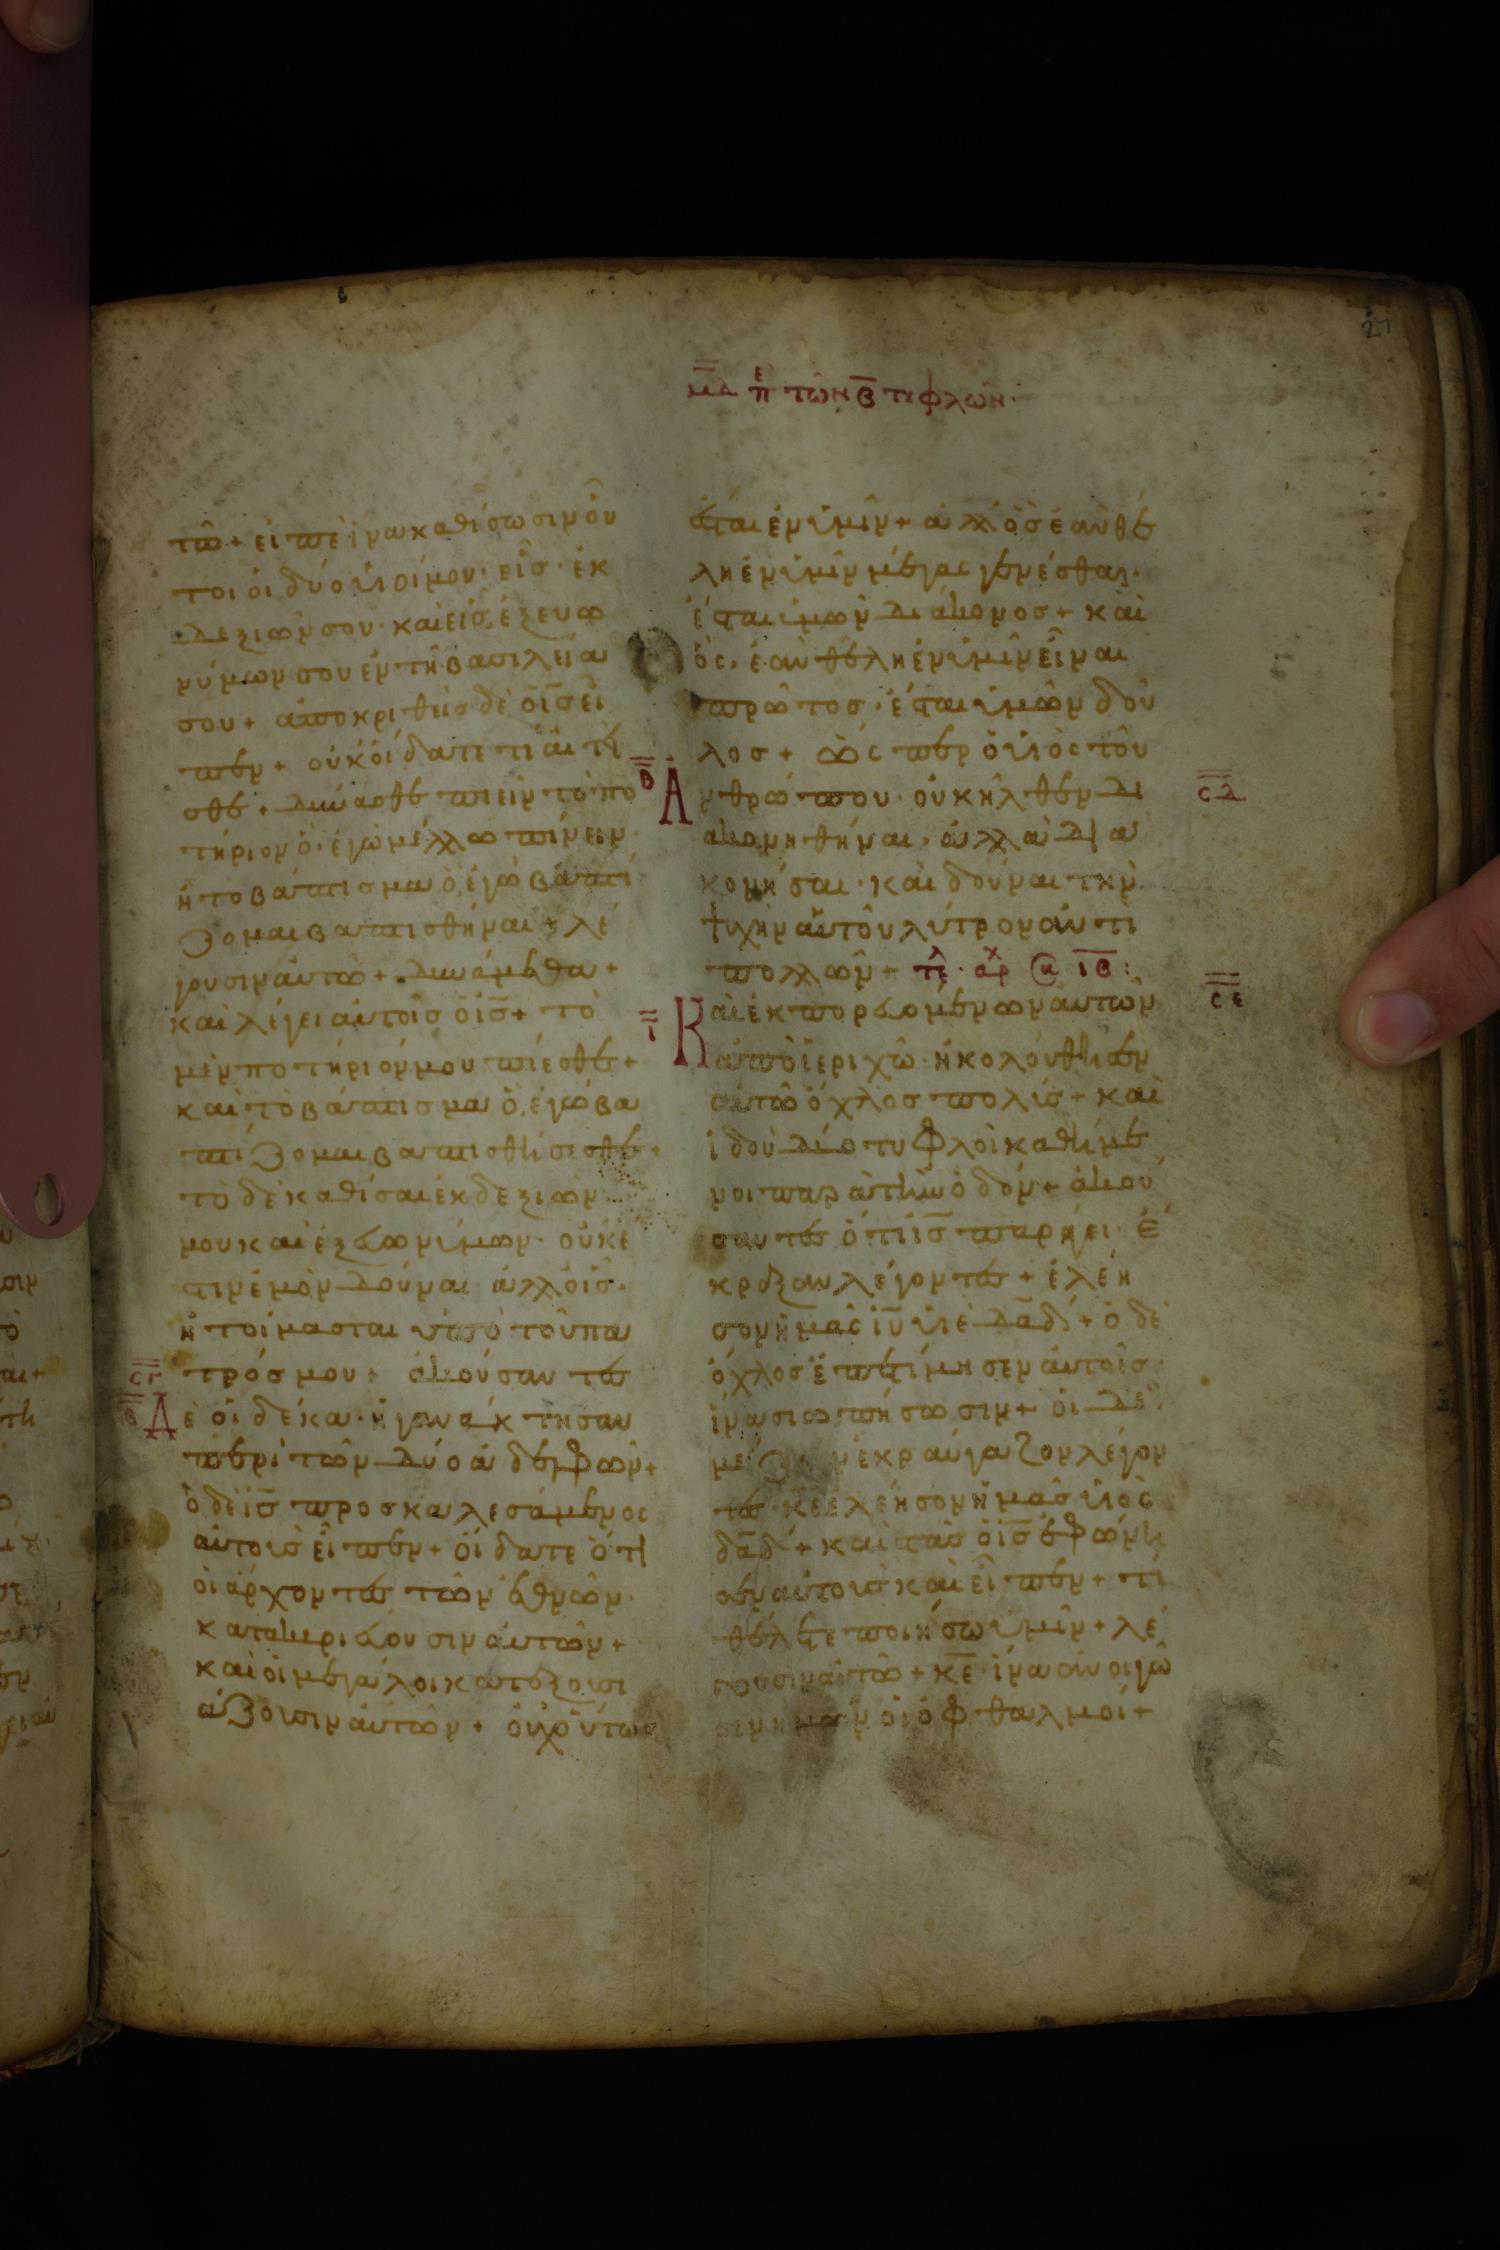 27
μδ πε τῶν β τυφλῶν·
τῶ + εἰπὲ ἵνα καθίσωσιν οὗ
τοι οἱ δύο ὑιοί μου· εἷσ· ἐκ
δεξιῶν σου· καὶ εἷσ, ἐξ ευω
νύμων σου ἐν τῆ βασιλεία
σου + ἀποκριθεὶσ δὲ ὁ ἰσ εἶ
πεν + οὐκ οἴδατε τί αἰτεῖ
σθε + δύνασθε πιεῖν τὸ πο
τήριον ὃ ἐγὼ μέλλω πίνειν·
ἢ το βάπτισμα ὃ, ἐγὼ βαπτί
ζομαι βαπτισθῆναι + λέ
γουσιν αὐτῶ + δυνάμεθα +
καὶ λέγει αὐτοῖσ ὁ ἰσ + τὸ
μὲν ποτήριόν μου πίεσθε +
καὶ τὸ βάπτισμα ὃ, ἐγὼ βα
πτίζομαι βαπτισθήσεσθε +
τὸ δὲ καθίσαι ἐκ δεξιῶν
μου καὶ ἐξ εὐωνύμων· οὐκ έ
στιν ἐμὸν δοῦναι ἀλλ οἷσ·
ἡτοίμασται ὑπὸ τοῦ πα
τρόσ μου + ἀκούσαντεσ
σγ
β Δὲ οἱ δέκα· ἠγανάκτησαν
περὶ τῶν δύο ἀδελφῶν +
ὁ δὲ ἰσ προσκαλεσάμενος
αὐτοὺσ εἶπεν + οἴδατε ὅτι
οἱ ἄρχοντεσ τῶν ἐθνῶν·
κατακυριεύουσιν αὐτῶν +
καὶ οἱ μεγάλοι κατεξουσι
άζουσιν αὐτῶν + οὐχ οὕτωσ
έσται ἐν ὑμῖν + ἀλλ ὃσ ἐὰν θέ
λη ἐν ὑμῖν μέγας γενέσθαι·
ἔσται ὑμῶν διάκονοσ + καὶ
ὃς, ἐὰν θέλη ἐν ὑμῖν εἶναι
πρῶτοσ· ἔσται ὑμῶν δοῦ
λοσ + ὥς περ ὁ ὑιὸς τοῦ
β Ἀνθρώπου· οὐκ ἦλθεν δι σδ
ακονηθῆναι, ἀλλὰ δια
κονῆσαι· καὶ δοῦναι τὴν
ψυχὴν αὐτοῦ λύτρον ἀντὶ
πολλῶν + τελ· αρχ ιβ:
ι Καὶ ἐκπορευομένων αὐτῶν σε
ἀπὸ ἱεριχῶ· ἠκολούθησεν
αὐτῶ ὄχλοσ πολύσ + καὶ
ἰδοὺ δύο τυφλοὶ καθήμε
νοι παρὰ τὴν ὁδόν + ἀκού
σαντεσ ὅτι ἰσ παράγει ἔ
κραξαν λέγοντεσ + ἐλέη
σον ἡμᾶς ἰῦ ὑιὲ δαδ + ὁ δὲ
ὄχλοσ ἐπετίμησεν αὐτοῖσ·
ἵνα σιωπήσωσιν + οἱ δὲ
μεῖζον ἐκραύγαζον λέγον
τεσ κε ἐλέησον ἡμᾶσ ὑιὸς
δαδ + καὶ στὰσ ὁ ἰσ ἐφώνη
σεν αὐτοὺσ καὶ εἶπεν + τί
θέλετε ποιήσω ὑμῖν + λέ
γουσιν αὐτῶ + κε ἵνα ἀνοιγῶ
σιν ἡμῶν οἱ ὀφθαλμοί +